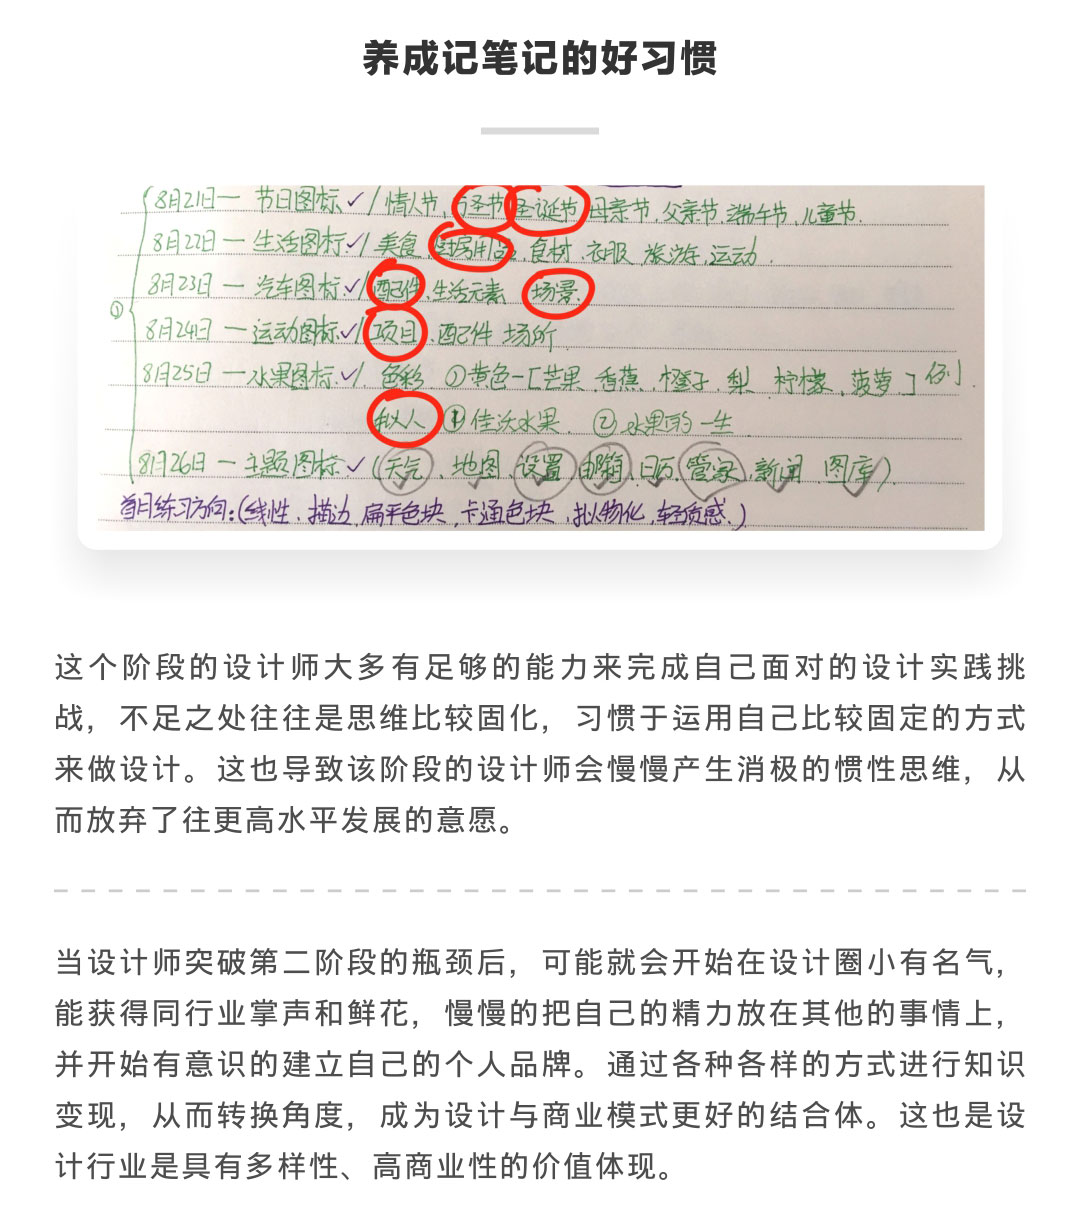 养成记笔记的好习惯
8月21日一 节日图标✓/情人节、万圣节 圣诞节 母亲节、父亲节、端午节、儿童节.
8月22日一 生活图标✓/美食、厨房用品、食材、衣服、旅游、运动.
8月23日一 汽车图标✓/配件、生活元素 场景.
① 8月24日一 运动图标✓/项目、配件 场所
8月25日一水果图标✓/、色彩 ①黄色一[芒果 香蕉、橙子、梨 柠檬、菠萝]例
拟人 ① 佳沃水果 ②水果的一生
8月26日一主题图标✓(天气、地图 设置 邮箱、日历、管家、新闻 图库)、
每日练习方向:(线性、描边 扁平色块、卡通色块、拟物化、轻质感、)
这个阶段的设计师大多有足够的能力来完成自己面对的设计实践挑
战，不足之处往往是思维比较固化，习惯于运用自己比较固定的方式
来做设计。这也导致该阶段的设计师会慢慢产生消极的惯性思维，从
而放弃了往更高水平发展的意愿。
当设计师突破第二阶段的瓶颈后，可能就会开始在设计圈小有名气，
能获得同行业掌声和鲜花，慢慢的把自己的精力放在其他的事情上，
并开始有意识的建立自己的个人品牌。通过各种各样的方式进行知识
变现，从而转换角度，成为设计与商业模式更好的结合体。这也是设
计行业是具有多样性、高商业性的价值体现。